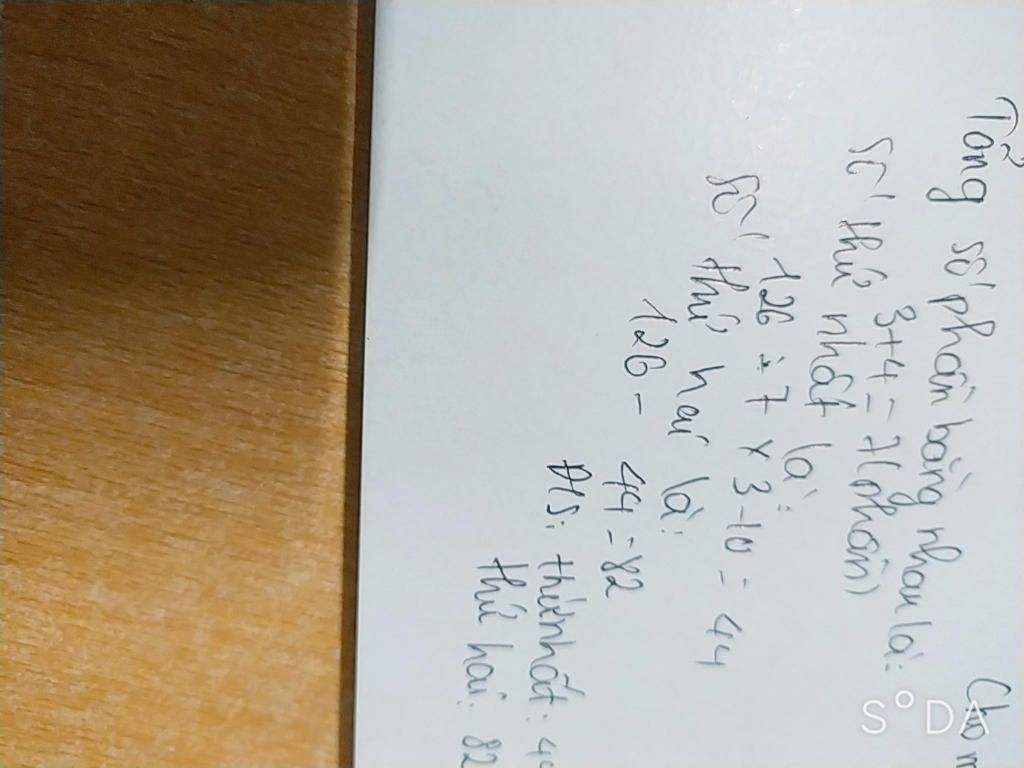 Cho m
Tổng số phần bằng nhau là:
3+4=7(phần)
Số thứ nhất là:
126 : 7 x 3 - 10 = 44
Số thứ hai là:
126 - 44 = 82
Đ/S: thứ nhất: 44
thứ hai: 82
S°DA